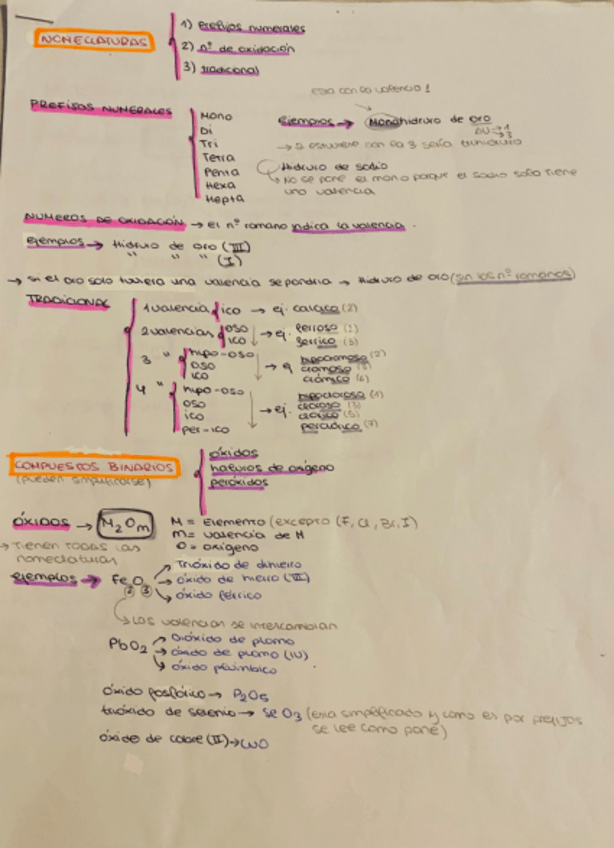 NOMECLATURAS
1) Prefijos numerales
2) nº de oxidación
3) tradicional
esta con la valencia 1
PREFIJOS NUMERALES
Mono
Di
Tri
Tetra
Penta
Hexa
Hepta
Ejemplos → Monohidruro de oro
AU → 1
→ 3
→ si estuviera con la 3 sería trihidruro
Hidruro de sodio
→ No se pone el mono porque el sodio solo tiene
una valencia
NUMEROS DE OXIDACIÓN → el nº romano indica la valencia.
Ejemplos → Hidruro de oro (III)
" " " (I)
→ si el oro solo tuviera una valencia se pondría → Hidruro de oro (sin los nº romanos)
TRADICIONAL
1 valencia ico → ej. calcico (2)
2 valencias oso → ej. ferroso (2)
ico férrico (3)
3 " hipo-oso hipocromoso (2)
oso → ej cromoso (3)
ico crómico (6)
4 " hipo-oso hipocloroso (1)
oso → ej. cloroso (3)
ico clórico (5)
per-ico perclórico (7)
COMPUESTOS BINARIOS
(pueden simplificarse)
óxidos
haluros de oxígeno
peróxidos
ÓXIDOS → M₂Om
M = Elemento (excepto (F, Cl, Br, I)
m = valencia de M
O = oxígeno
→ Tienen todas las
nomeclaturas
ejemplos → Fe₂O₃
Trióxido de dihierro
óxido de hierro (III)
óxido férrico
→ Las valencias se intercambian
PbO₂
Dióxido de plomo
óxido de plomo (IV)
óxido plúmbico
óxido fosfórico → P₂O₅
trióxido de selenio → SeO₃ (está simplificado y como es por prefijos
se lee como pone)
óxido de cobre (II) → CuO